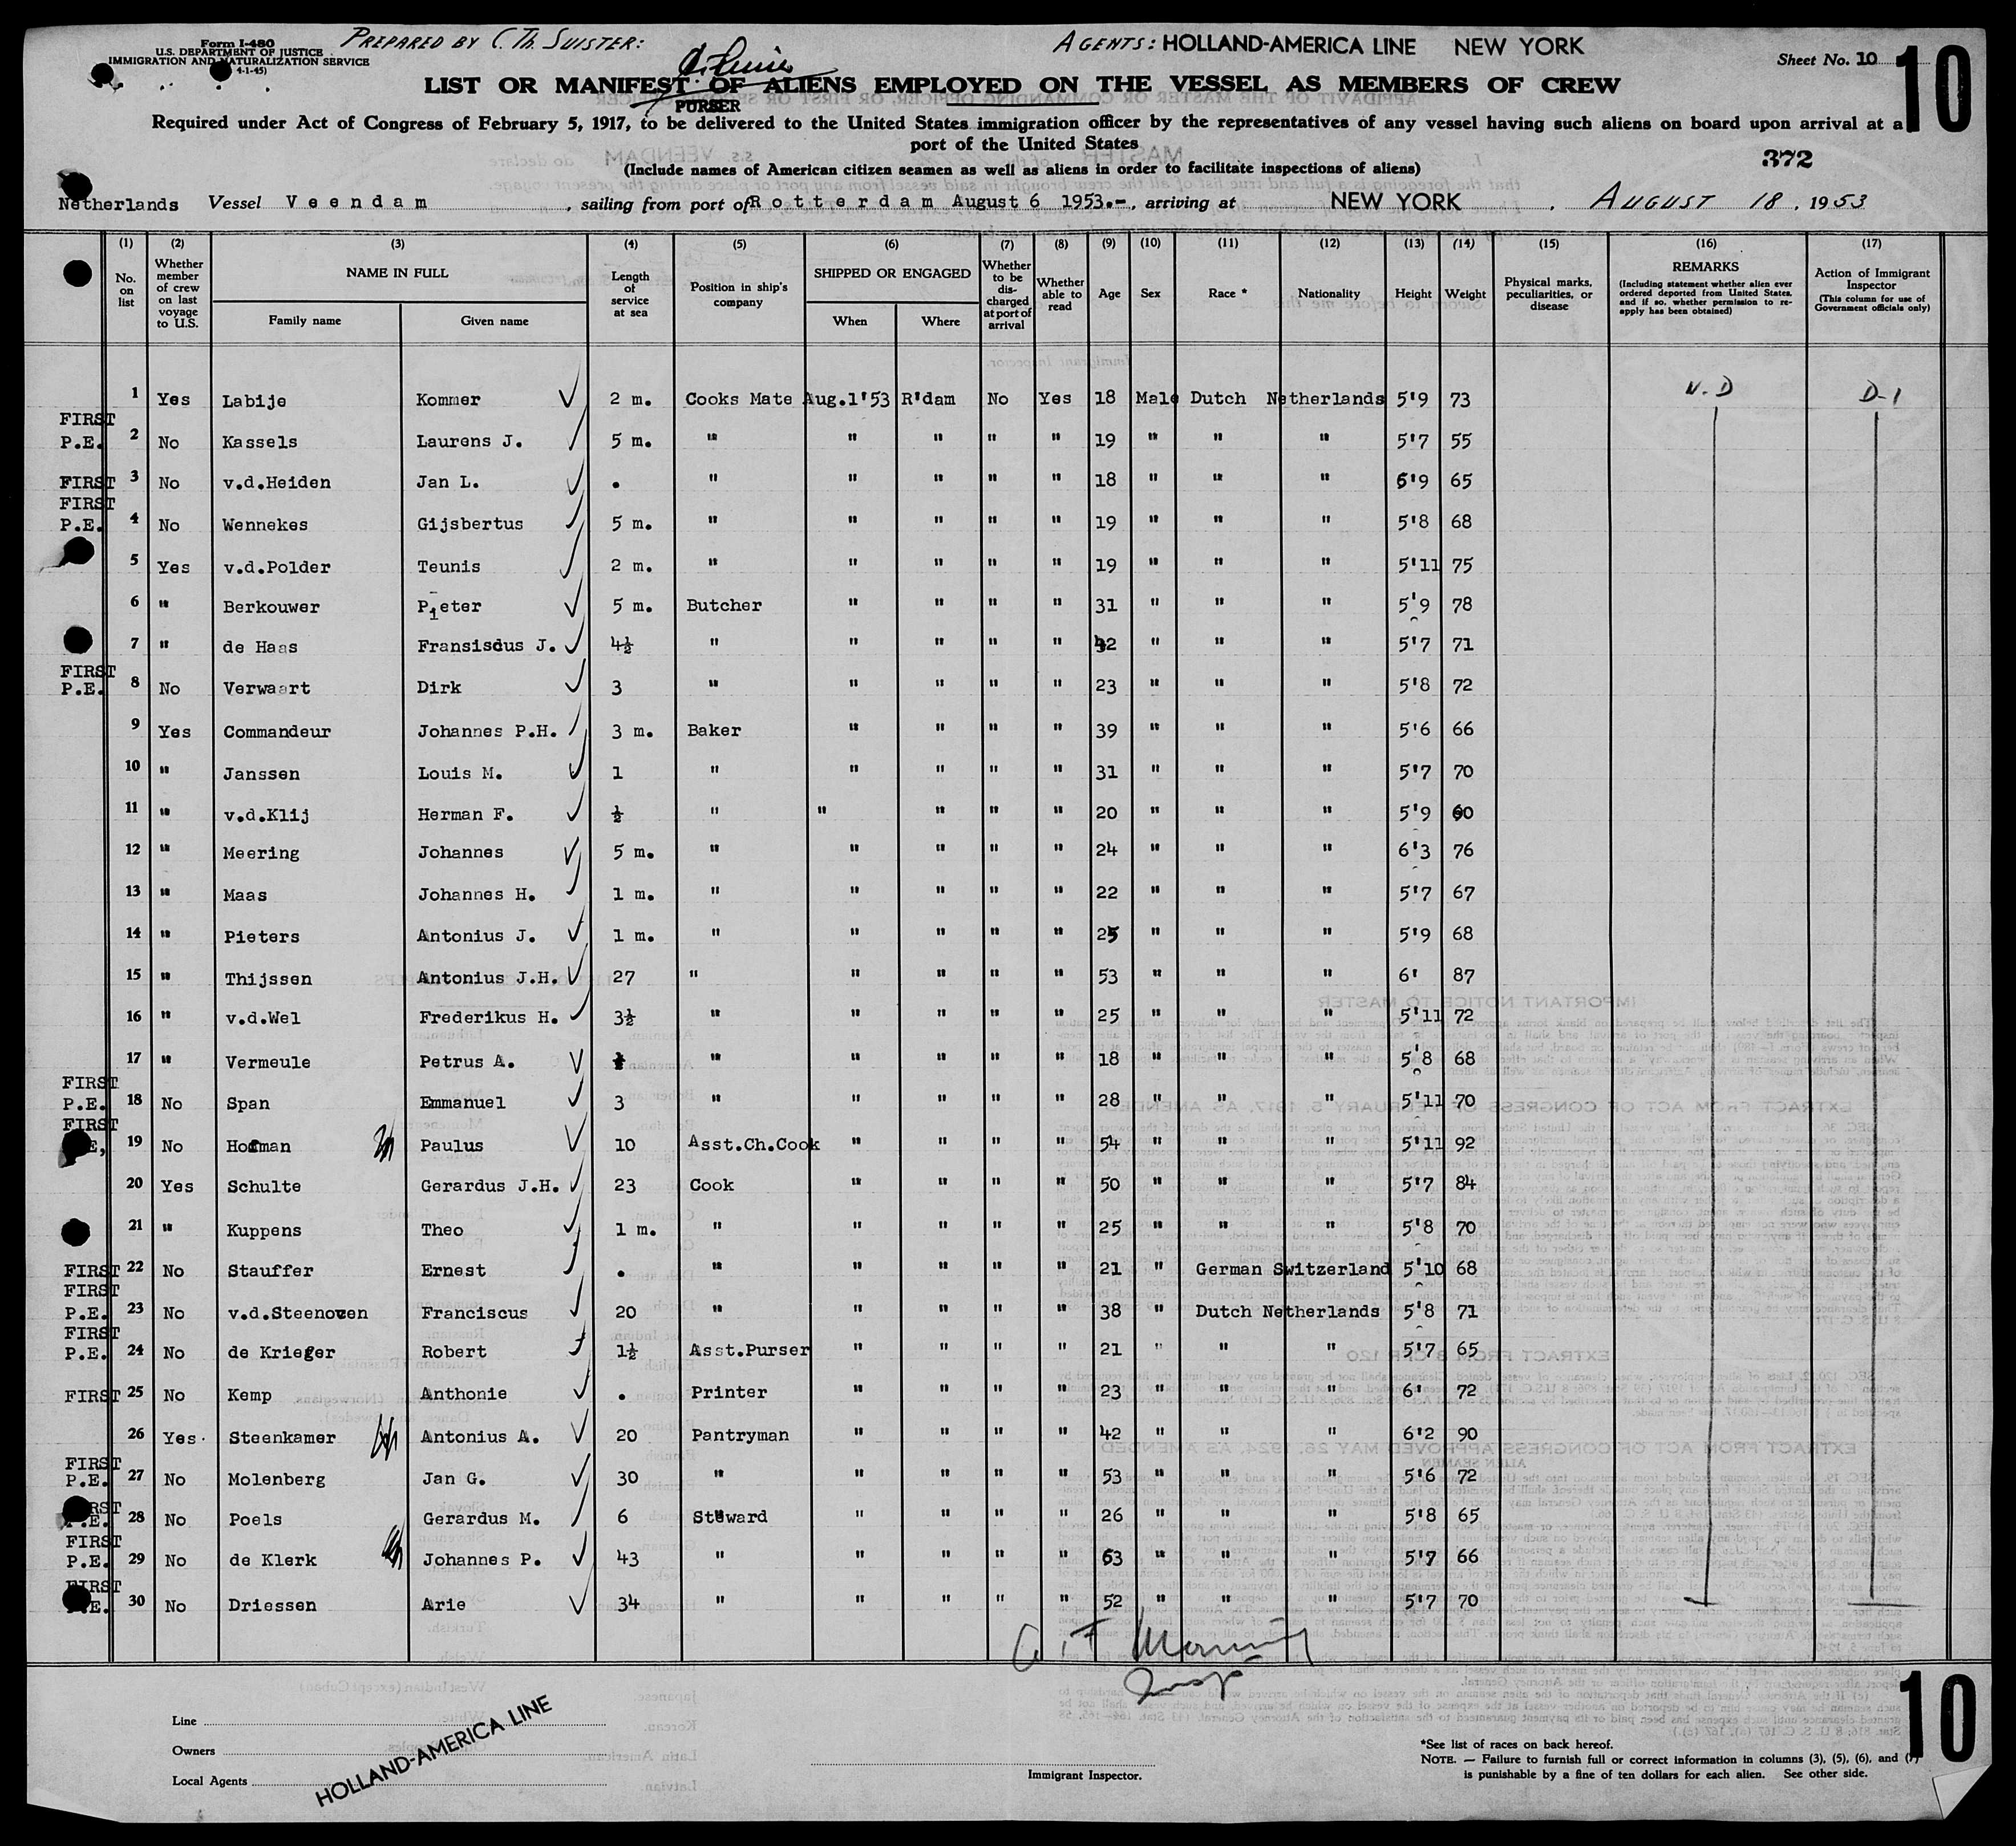 Form I-480
U.S. DEPARTMENT OF JUSTICE
IMMIGRATION AND NATURALIZATION SERVICE
4-1-45)
PREPARED BY C. Th. SUISTER:
AGENTS: HOLLAND-AMERICA LINE NEW YORK
Sheet No. 10
10
LIST OR MANIFEST OF ALIENS EMPLOYED ON THE VESSEL AS MEMBERS OF CREW
PURSER
Required under Act of Congress of February 5, 1917, to be delivered to the United States immigration officer by the representatives of any vessel having such aliens on board upon arrival at a
port of the United States
372
(Include names of American citizen seamen as well as aliens in order to facilitate inspections of aliens)
Netherlands Vessel Veendam, sailing from port of Rotterdam August 6 1953.-, arriving at NEW YORK, AUGUST 18, 1953
(1) (2) (3) (4) (5) (6) (7) (8) (9) (10) (11) (12) (13) (14) (15) (16) (17)
No. on list
Whether member of crew on last voyage to U.S.
NAME IN FULL
Family name
Given name
Length of service at sea
Position in ship's company
SHIPPED OR ENGAGED
When
Where
Whether to be discharged at port of arrival
Whether able to read
Age
Sex
Race *
Nationality
Height
Weight
Physical marks, peculiarities, or disease
REMARKS
(Including statement whether alien ever ordered deported from United States, and if so, whether permission to re-apply has been obtained)
Action of Immigrant Inspector
(This column for use of Government officials only)
1 Yes Labije Kommer 2 m. Cooks Mate Aug.1'53 R'dam No Yes 18 Male Dutch Netherlands 5'9 73 N.D D-1
FIRST P.E. 2 No Kassels Laurens J. 5 m. " " " " " 19 " " " 5'7 55
FIRST 3 No v.d.Heiden Jan L. . " " " " " 18 " " " 5'9 65
FIRST P.E. 4 No Wennekes Gijsbertus 5 m. " " " " " 19 " " " 5'8 68
5 Yes v.d.Polder Teunis 2 m. " " " " " 19 " " " 5'11 75
6 " Berkouwer Pieter 5 m. Butcher " " " " 31 " " " 5'9 78
7 " de Haas Fransiscus J. 4½ " " " " " 42 " " " 5'7 71
FIRST P.E. 8 No Verwaart Dirk 3 " " " " " 23 " " " 5'8 72
9 Yes Commandeur Johannes P.H. 3 m. Baker " " " " 39 " " " 5'6 66
10 " Janssen Louis M. 1 " " " " " 31 " " " 5'7 70
11 " v.d.Klij Herman F. ½ " " " " " 20 " " " 5'9 60
12 " Meering Johannes 5 m. " " " " " 24 " " " 6'3 76
13 " Maas Johannes H. 1 m. " " " " " 22 " " " 5'7 67
14 " Pieters Antonius J. 1 m. " " " " " 25 " " " 5'9 68
15 " Thijssen Antonius J.H. 27 " " " " " 53 " " " 6' 87
16 " v.d.Wel Frederikus H. 3½ " " " " " 25 " " " 5'11 72
17 " Vermeule Petrus A. " " " " " 18 " " " 5'8 68
FIRST P.E. 18 No Span Emmanuel 3 " " " " " 28 " " " 5'11 70
FIRST 19 No Hofman Paulus 10 Asst.Ch.Cook " " " " 54 " " " 5'11 92
20 Yes Schulte Gerardus J.H. 23 Cook " " " " 50 " " " 5'7 84
21 " Kuppens Theo 1 m. " " " " " 25 " " " 5'8 70
FIRST 22 No Stauffer Ernest . " " " " " 21 " German Switzerland 5'10 68
FIRST P.E. 23 No v.d.Steenoven Franciscus 20 " " " " " 38 " Dutch Netherlands 5'8 71
FIRST P.E. 24 No de Krieger Robert 1½ Asst.Purser " " " " 21 " " " 5'7 65
FIRST 25 No Kemp Anthonie . Printer " " " " 23 " " " 6' 72
26 Yes. Steenkamer Antonius A. 20 Pantryman " " " " 42 " " " 6'2 90
FIRST P.E. 27 No Molenberg Jan G. 30 " " " " " 53 " " " 5'6 72
FIRST P.E. 28 No Poels Gerardus M. 6 Steward " " " " 26 " " " 5'8 65
FIRST P.E. 29 No de Klerk Johannes P. 43 " " " " " 63 " " " 5'7 66
FIRST P.E. 30 No Driessen Arie 34 " " " " " 52 " " " 5'7 70
Insp
Line
Owners
Local Agents
HOLLAND-AMERICA LINE
Immigrant Inspector.
*See list of races on back hereof.
NOTE. — Failure to furnish full or correct information in columns (3), (5), (6), and (7)
is punishable by a fine of ten dollars for each alien. See other side.
10